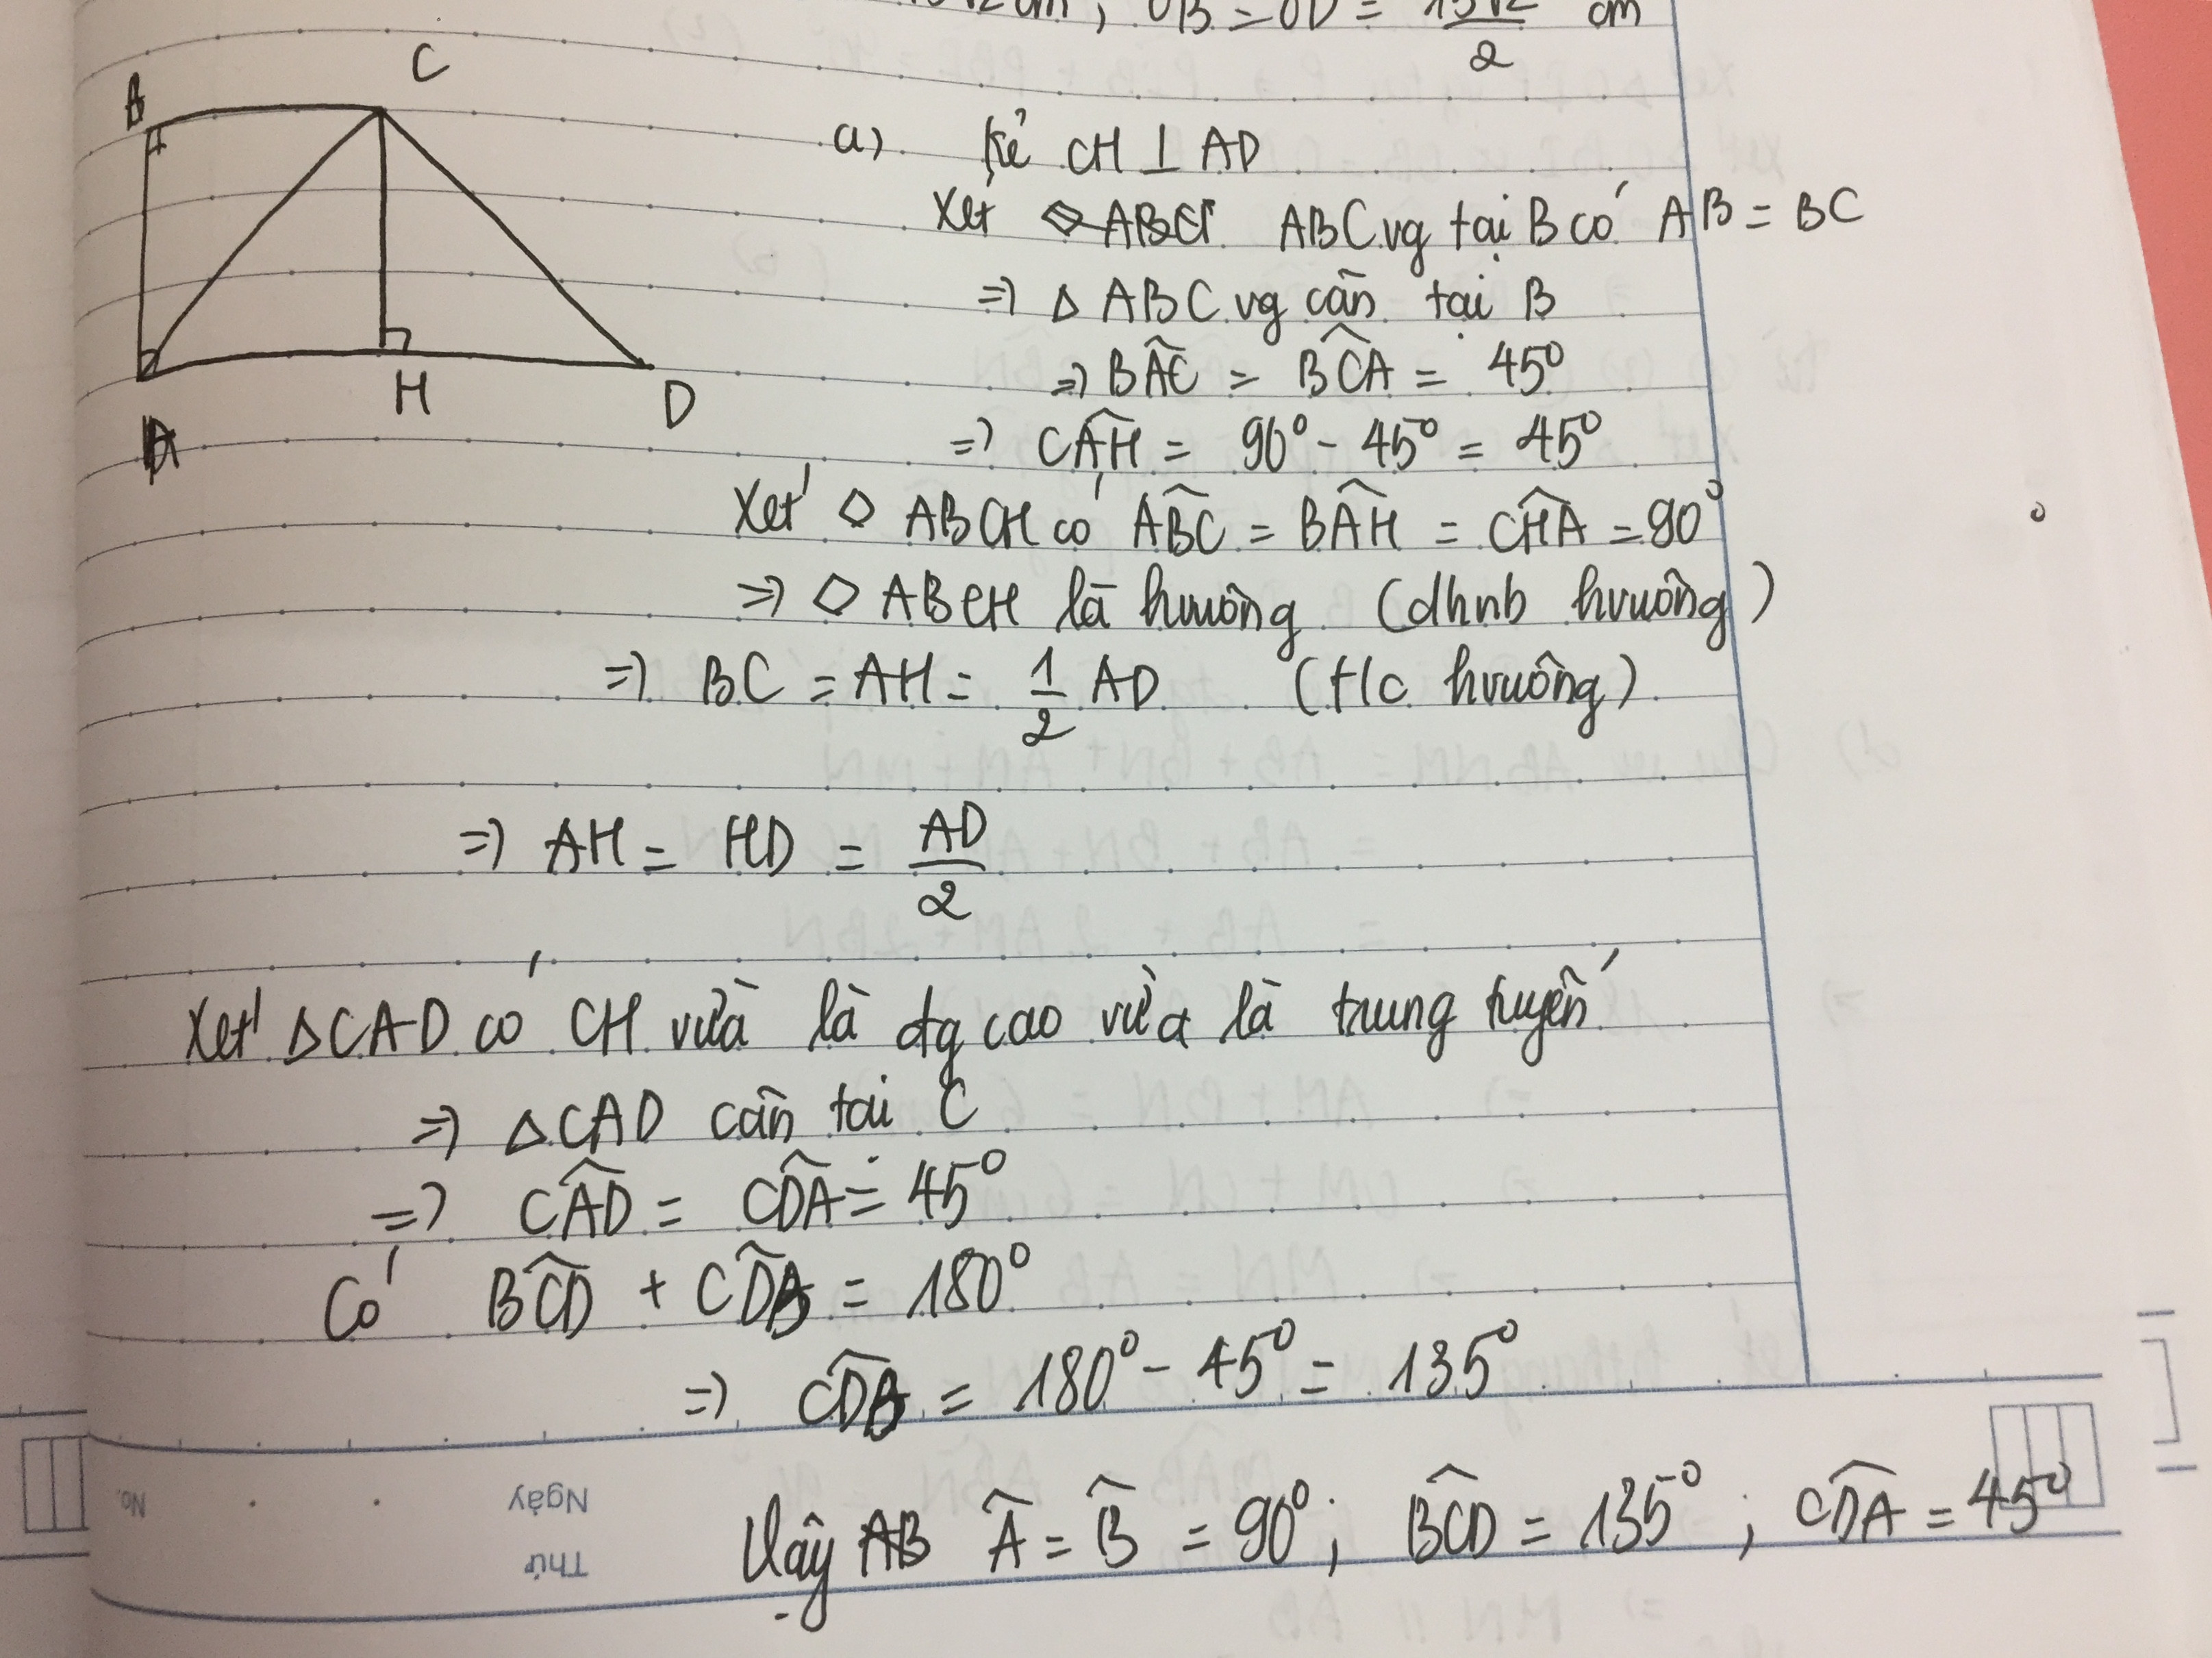 OB = OD = 15√2/2 cm
B
C
A
H
D
a) Kẻ CH ⊥ AD
Xét ABC vg tại B có AB = BC
=> Δ ABC vg cân tại B
=> BÂC = BĈA = 45°
=> CÂH = 90° - 45° = 45°
Xét ◇ ABCH có AB̂C = BÂH = CĤA = 90°
=> ◇ ABCH là hvuông (dhnb hvuông)
=> BC = AH = 1/2 AD (t/c hvuông)
=> AH = HD = AD/2
Xét ΔCAD có CH vừa là đg cao vừa là trung tuyến
=> ΔCAD cân tại C
=> CÂD = CD̂A = 45°
Có BĈD + CD̂A = 180°
=> CD̂B = 180° - 45° = 135°
Vậy AB Â = B̂ = 90°; BĈD = 135°; CD̂A = 45°
No.
Ngày
Thứ